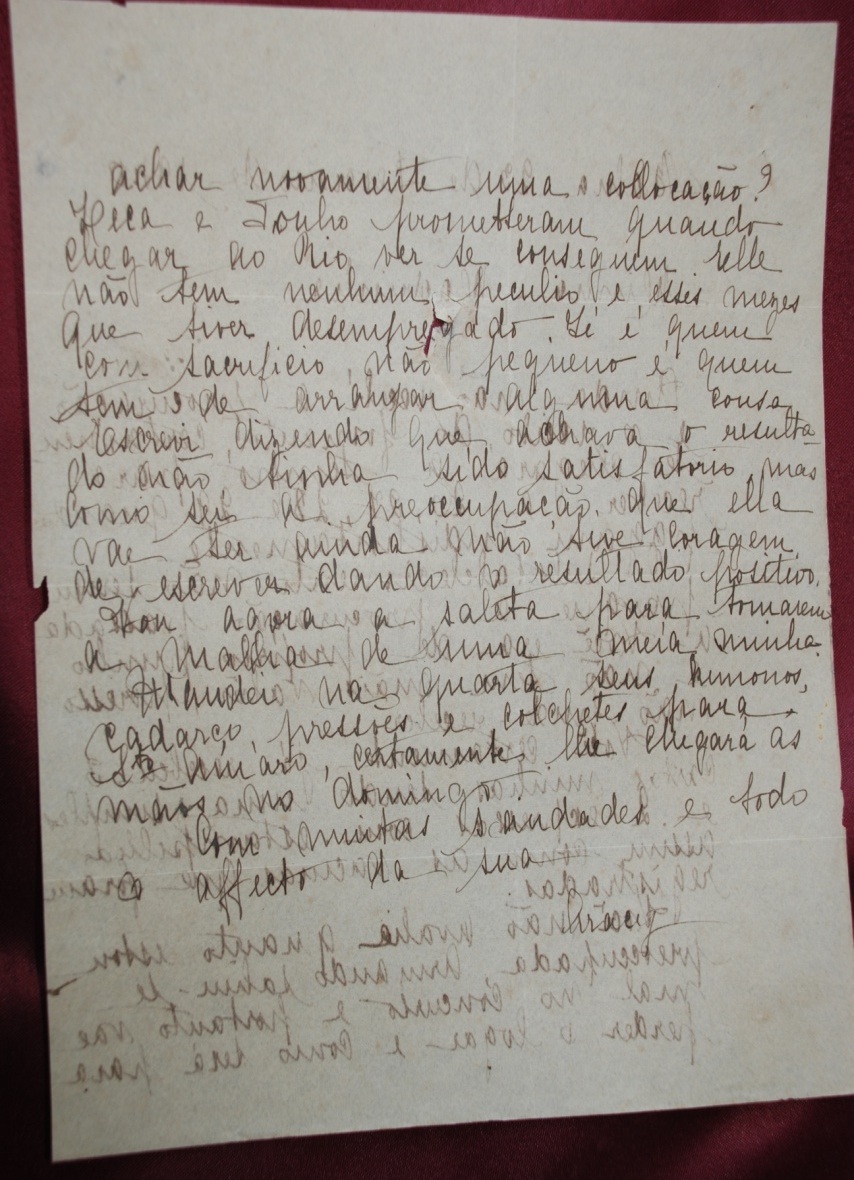 achar novamente uma collocação?
Zeca e Tonho prometteram quando
chegar ao Rio ver se conseguem. Elle
não tem nenhum peculio e esses mezes
que tiver desempregado. Zé é quem
com sacrificio não pequeno é quem
tem de arranjar alguma cousa
Escrevi dizendo que achava o resulta
do não tinha sido satisfatorio, mas
como sei a preoccupação que ella
vae ter ainda não tive coragem
de escrever dando o resultado positivo.
Vou agora a saleta para tomarem
a malha de uma meia minha.
Mandei na quarta seus
cadarço, pressões e colchetes para
Sto Amaro, certamente lhe chegará ás
mãos no domingo.
Com muitas saudades e todo
o affecto da sua
Iracy